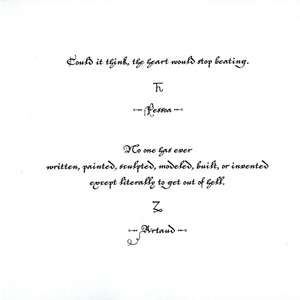 Could it think, the heart would stop beating.
Pessoa
No one has ever
written, painted, sculpted, modeled, built, or invented
except literally to get out of hell.
Artaud